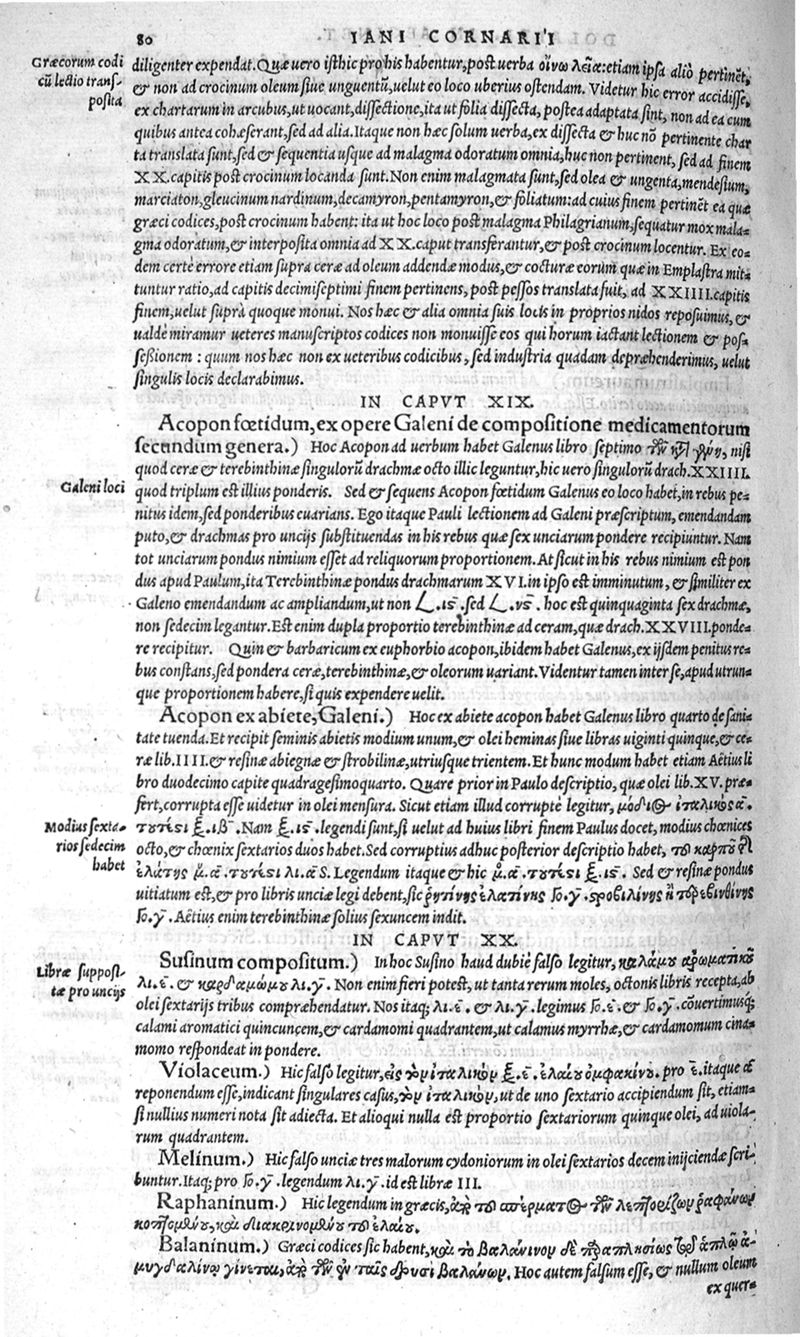 80 IANI CORNARII
Græcorum codi
cũ lectio transʃ-
posita
diligenter expendat. Quæ uero isthic pro his habentur, post uerba οἴνω λεῖα: etiam ipsa aliò pertinẽt,
& non ad crocinum oleum siue unguentũ, uelut eo loco uberius ostendam. Videtur hic error accidisse,
ex chartarum in arcubus, ut uocant, dissectione, ita ut folia dissecta, postea adaptata sint, non ad ea cum
quibus antea cohæserant, sed ad alia. Itaque non hæc solum uerba, ex dissecta & huc nõ pertinente char
ta translata sunt, sed & sequentia usque ad malagma odoratum omnia, huc non pertinent, sed ad finem
XX. capitis post crocinum locanda sunt. Non enim malagmata sunt, sed olea & ungenta, mendesium,
marciaton, gleucinum nardinum, decamyron, pentamyron, & foliatum: ad cuius finem pertinẽt ea quæ
græci codices, post crocinum habent: ita ut hoc loco post malagma Philagrianum, sequatur mox mala-
gma odoratum, & interposita omnia ad XX. caput transferantur, & post crocinum locentur. Ex eo-
dem certè errore etiam supra ceræ ad oleum addendæ modus, & cocturæ eorũ quæ in Emplastra mit-
tuntur ratio, ad capitis decimiseptimi finem pertinens, post pessos translata fuit, ad XXIIII. capitis
finem, uelut suprà quoque monui. Nos hæc & alia omnia suis locis in proprios nidos reposuimus, &
ualdè miramur ueteres manuscriptos codices non monuisse eos qui horum iactant lectionem & pos-
sessionem: quum nos hæc non ex ueteribus codicibus, sed industria quadam depræhenderimus, uelut
singulis locis declarabimus.
IN CAPVT XIX.
Acopon fœtidum, ex opere Galeni de compositione medicamentorum
secundum genera.) Hoc Acopon ad uerbum habet Galenus libro septimo τῶν κατὰ γένη, nisi
quod ceræ & terebinthinæ singulorũ drachmæ octo illic leguntur, hic uero singulorũ drach. XXIIII.
Galeni loci
quod triplum est illius ponderis. Sed & sequens Acopon fœtidum Galenus eo loco habet, in rebus pe-
nitus idem, sed ponderibus euarians. Ego itaque Pauli lectionem ad Galeni præscriptum, emendandam
puto, & drachmas pro uncijs substituendas in his rebus quæ sex unciarum pondere recipiuntur. Nam
tot unciarum pondus nimium esset ad reliquorum proportionem. At sicut in his rebus nimium est pon
dus apud Paulum, ita Terebinthinæ pondus drachmarum XVI. in ipso est imminutum, & similiter ex
Galeno emendandum ac ampliandum, ut non L. ις. sed L. νς. hoc est quinquaginta sex drachmæ,
non sedecim legantur. Est enim dupla proportio terebinthinæ ad ceram, quæ drach. XXVIII. ponde-
re recipitur. Quin & barbaricum ex euphorbio acopon, ibidem habet Galenus, ex ijsdem penitus re-
bus constans, sed pondera ceræ, terebinthinæ, & oleorum uariant. Videntur tamen inter se, apud utrun-
que proportionem habere, si quis expendere uelit.
Acopon ex abiete, Galeni.) Hoc ex abiete acopon habet Galenus libro quarto de sani-
tate tuenda. Et recipit seminis abietis modium unum, & olei heminas siue libras uiginti quinque, & ce-
ræ lib. IIII. & resinæ abiegnæ & strobilinæ, utriusque trientem. Et hunc modum habet etiam Aëtius li
bro duodecimo capite quadragesimoquarto. Quare prior in Paulo descriptio, quæ olei lib. XV. præ-
fert, corrupta esse uidetur in olei mensura. Sicut etiam illud corruptè legitur, μόδιος ἰταλικὸς α.
Modius sexta-
rios sedecim
habet
τουτέστι ξ. ιβ. Nam ξ. ις. legendi sunt, si uelut ad huius libri finem Paulus docet, modius chœnices
octo, & chœnix sextarios duos habet. Sed corruptius adhuc posterior descriptio habet, τοῦ καρποῦ τῆς
ἐλάτης μ. α. τουτέστι λι. α S. Legendum itaque & hic μ. α. τουτέστι ξ. ις. Sed & resinæ pondus
uitiatum est, & pro libris unciæ legi debent, sic ῥητίνης ἐλατίνης γο. γ. στροβιλίνης ἢ τερεβινθίνης
γο. γ. Aëtius enim terebinthinæ solius sexuncem indit.
IN CAPVT XX.
Libræ supposi-
tæ pro uncijs
Susinum compositum.) In hoc Susino haud dubiè falso legitur, καλάμου ἀρωματικοῦ
λι. ε. & καρδαμώμου λι. γ. Non enim fieri potest, ut tanta rerum moles, octonis libris recepta, ab
olei sextarijs tribus compræhendatur. Nos itaq; λι. ε. & λι. γ. legimus γο. ε. & γο. γ. cõuertimusq;
calami aromatici quincuncem, & cardamomi quadrantem, ut calamus myrrhæ, & cardamomum cina-
momo respondeat in pondere.
Violaceum.) Hic falso legitur, εἰς τὸν ἰταλικὸν ξ. ε. ἐλαίου ὀμφακίνου. pro ε. itaque α
reponendum esse, indicant singulares casus, τὸν ἰταλικὸν, ut de uno sextario accipiendum sit, etiam-
si nullius numeri nota sit adiecta. Et alioqui nulla est proportio sextariorum quinque olei, ad uiola-
rum quadrantem.
Melinum.) Hic falso unciæ tres malorum cydoniorum in olei sextarios decem inijciendæ scri-
buntur. Itaq; pro γο. γ. legendum λι. γ. id est libræ III.
Raphaninum.) Hic legendum in græcis, ἀπὸ τοῦ σπέρματος τῶν λεπτοῤῥίζων ῥαφάνων
κοπτομένου, καὶ διακρινομένου τοῦ ἐλαίου.
Balaninum.) Græci codices sic habent, καὶ τὸ βαλάνινον δὲ παραπλησίως τῷ ἁπλῷ ἀ-
μυγδαλίνῳ γίνεται, ἀπὸ τῶν ἐν ταῖς δρυσὶ βαλάνων. Hoc autem falsum esse, & nullum oleum
ex quer-